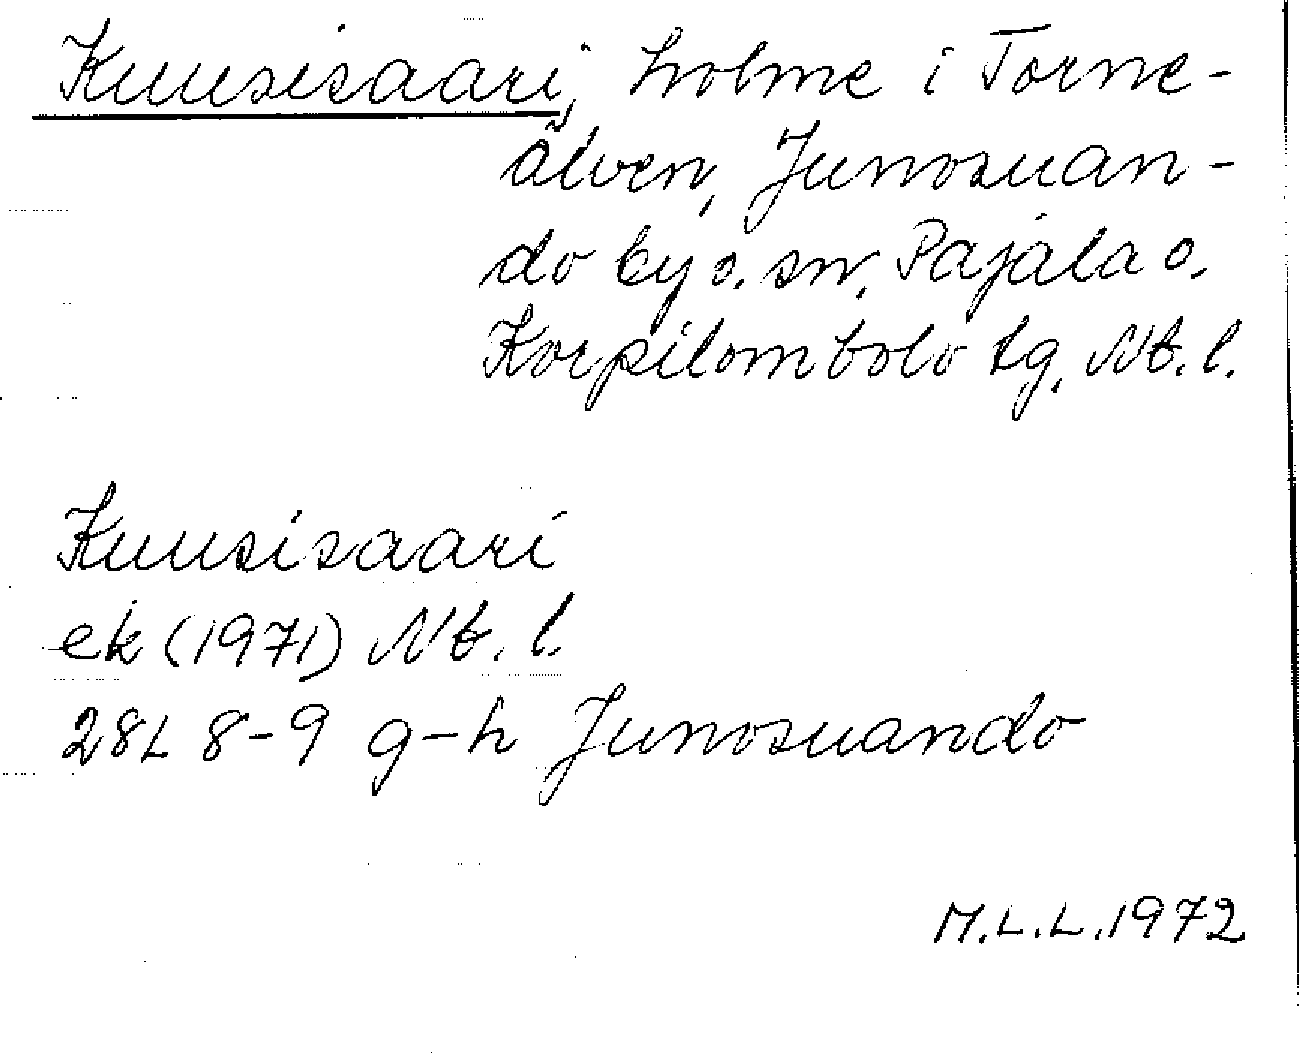 Kuusisaari, holme i Torne-
älven, Junosuan-
do by o. sn, Pajala o.
Korpilombolo tg, Nb. l.
Kuusisaari
ek (1971) Nb. l.
28L 8-9 g-h Junosuando
M.L.L. 1972